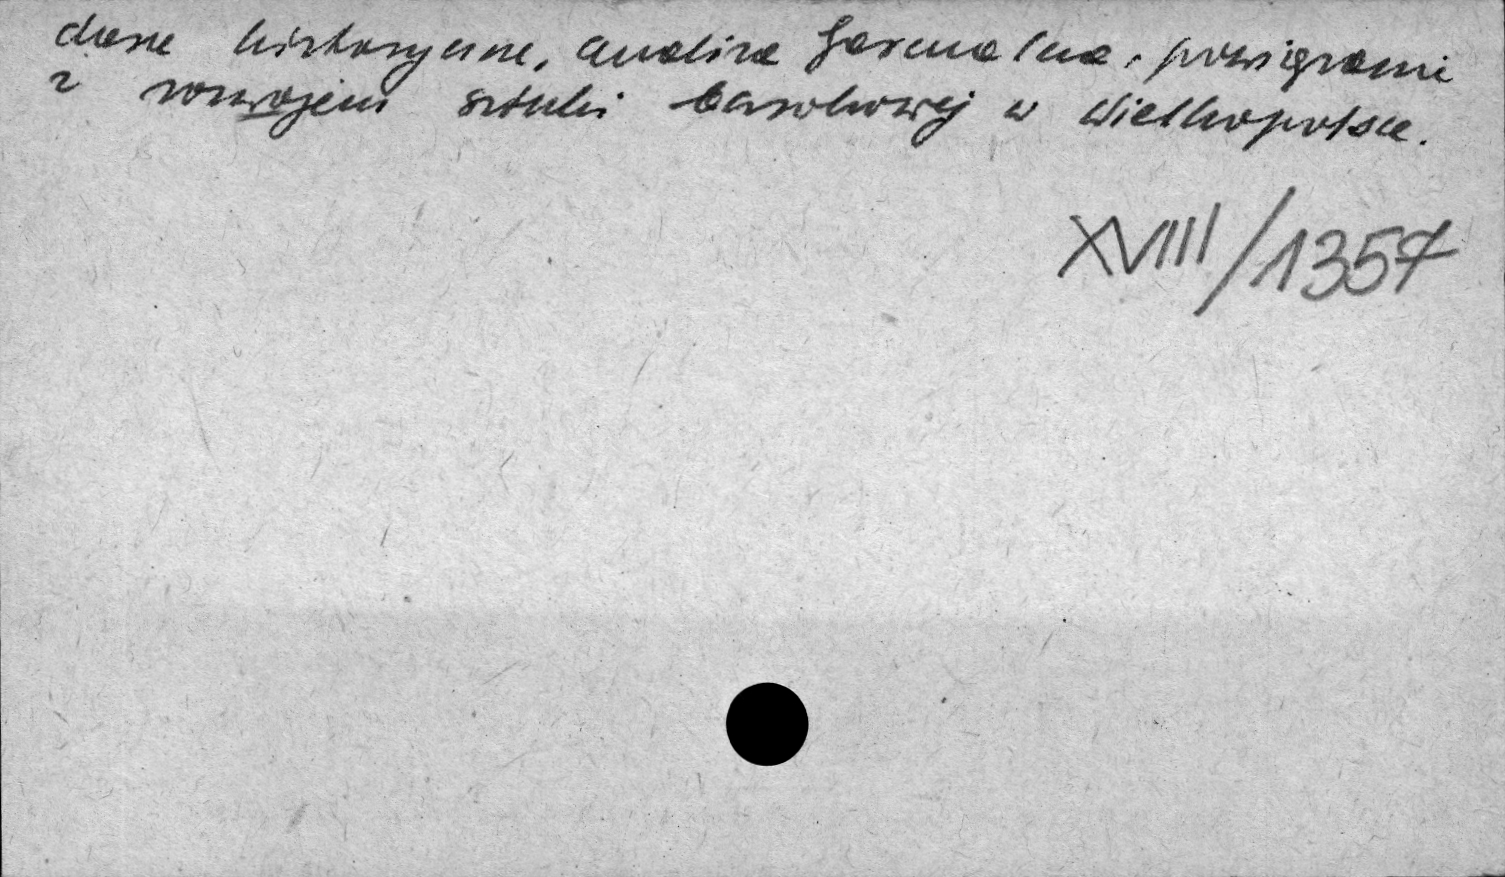 dane historyczne, analiza formalna, powiązanie
z rozwojem sztuki barokowej w Wielkopolsce.
XVIII/1357